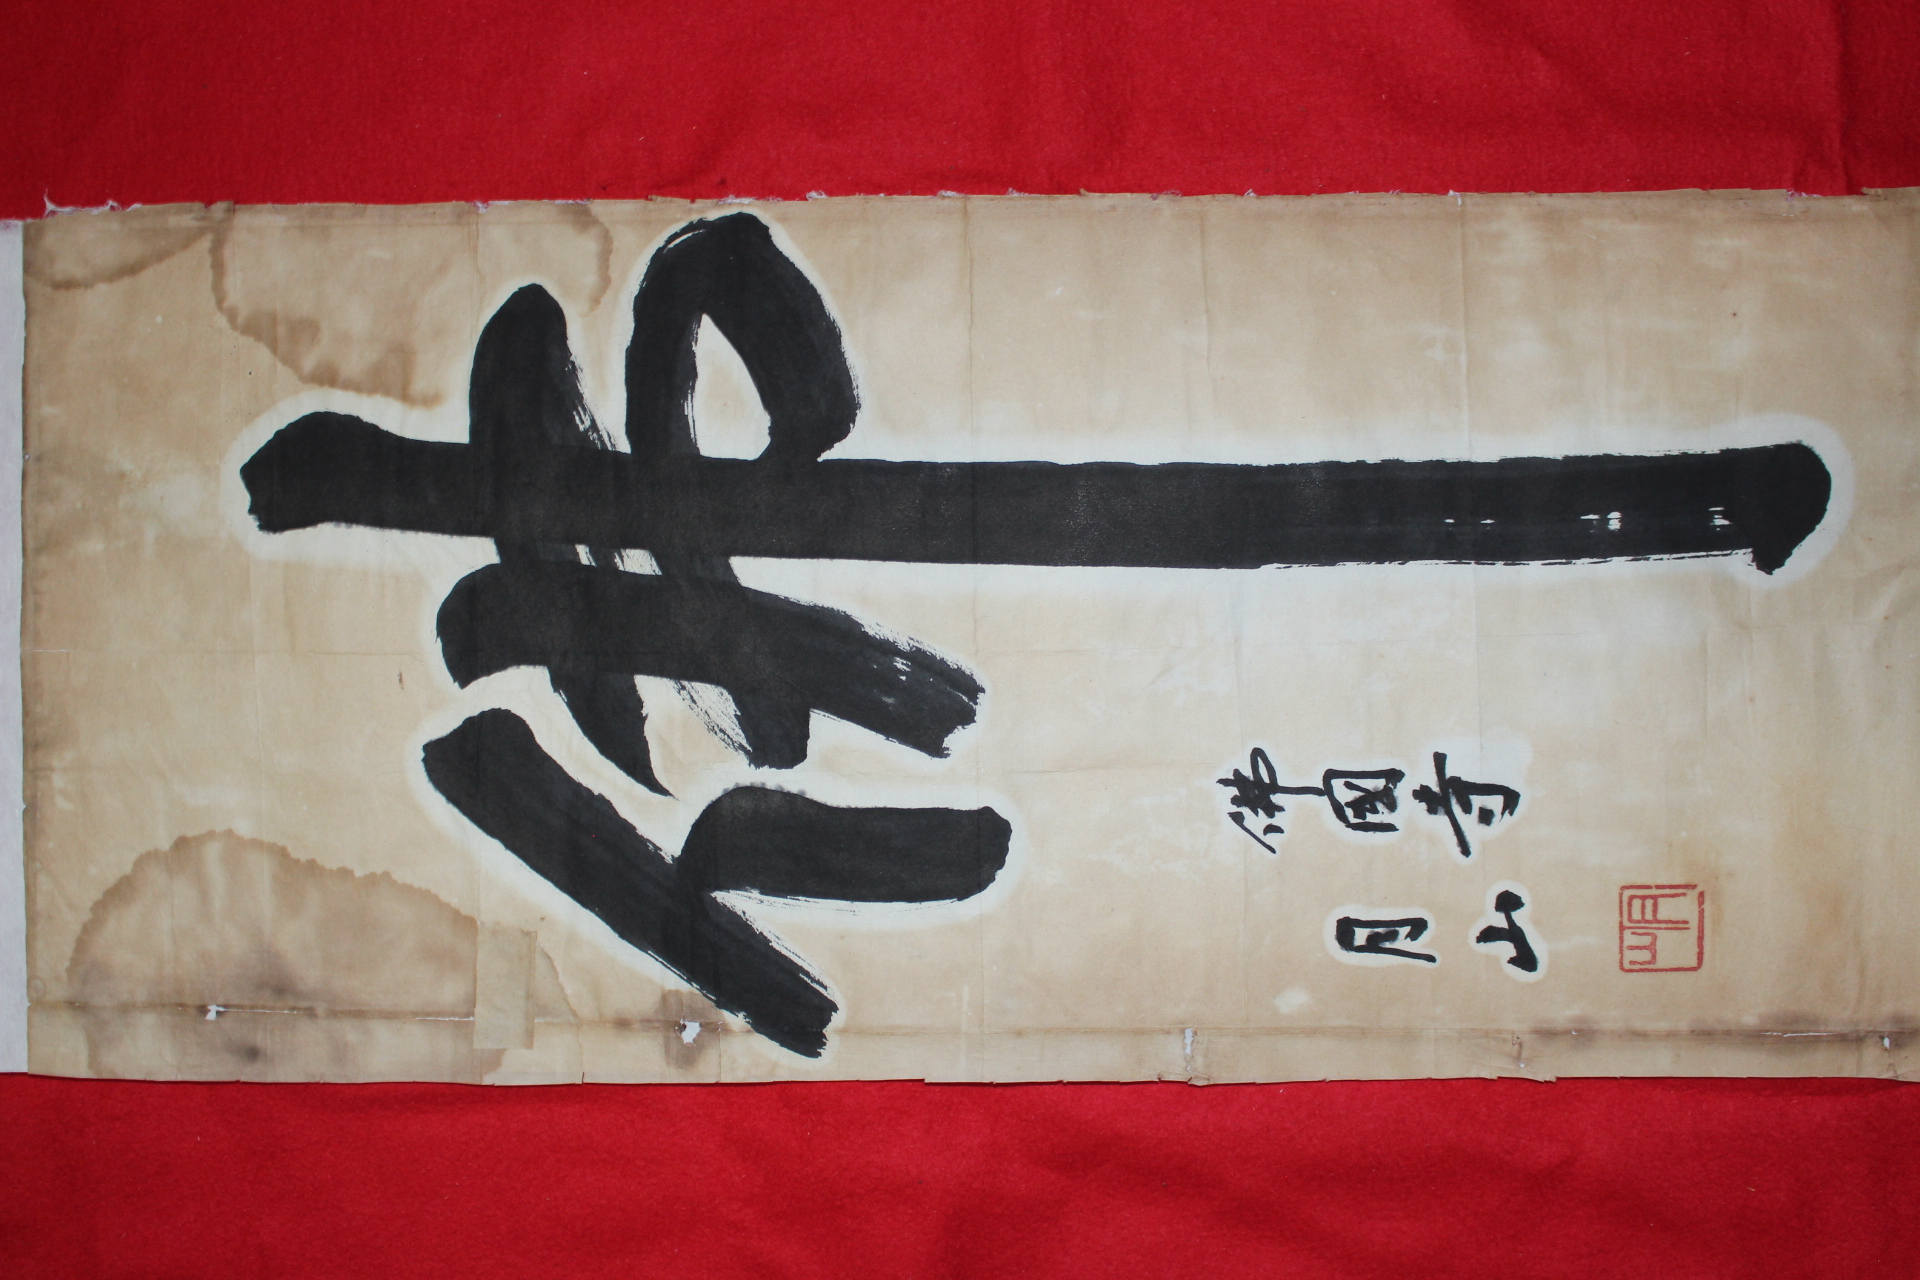 佛
佛國寺
月山
月山